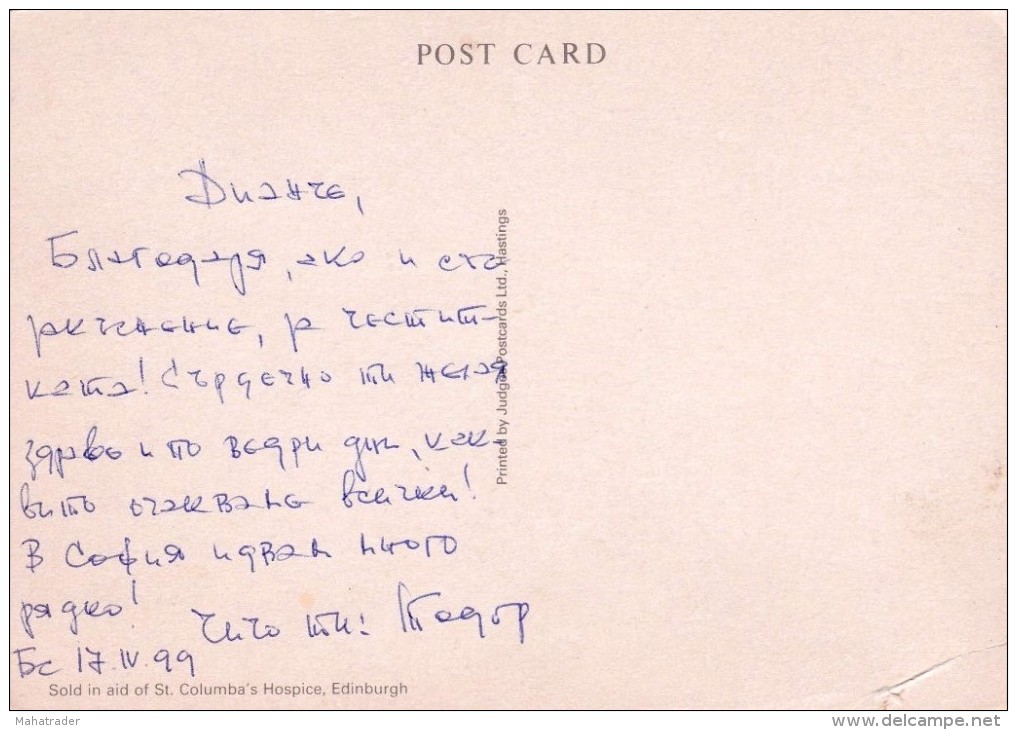 POST CARD
Дианче,
Благодаря, ако и със
закъснение, за честит-
ката! Сърдечно ти желая
здраве и по ведри дни, как-
вито очакваме всички!
В София идвам много
рядко!
Чичо ти: Тодор
Бс 17.IV.99
Printed by Judges Postcards Ltd., Hastings
Sold in aid of St. Columba's Hospice, Edinburgh
Mahatrader
delcampe.net